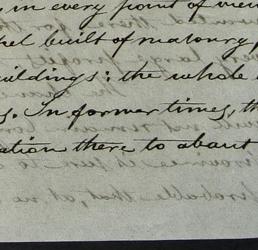 in every point of view
el built of masonry,
uildings: the whole
s. In former times, th
ation there to about